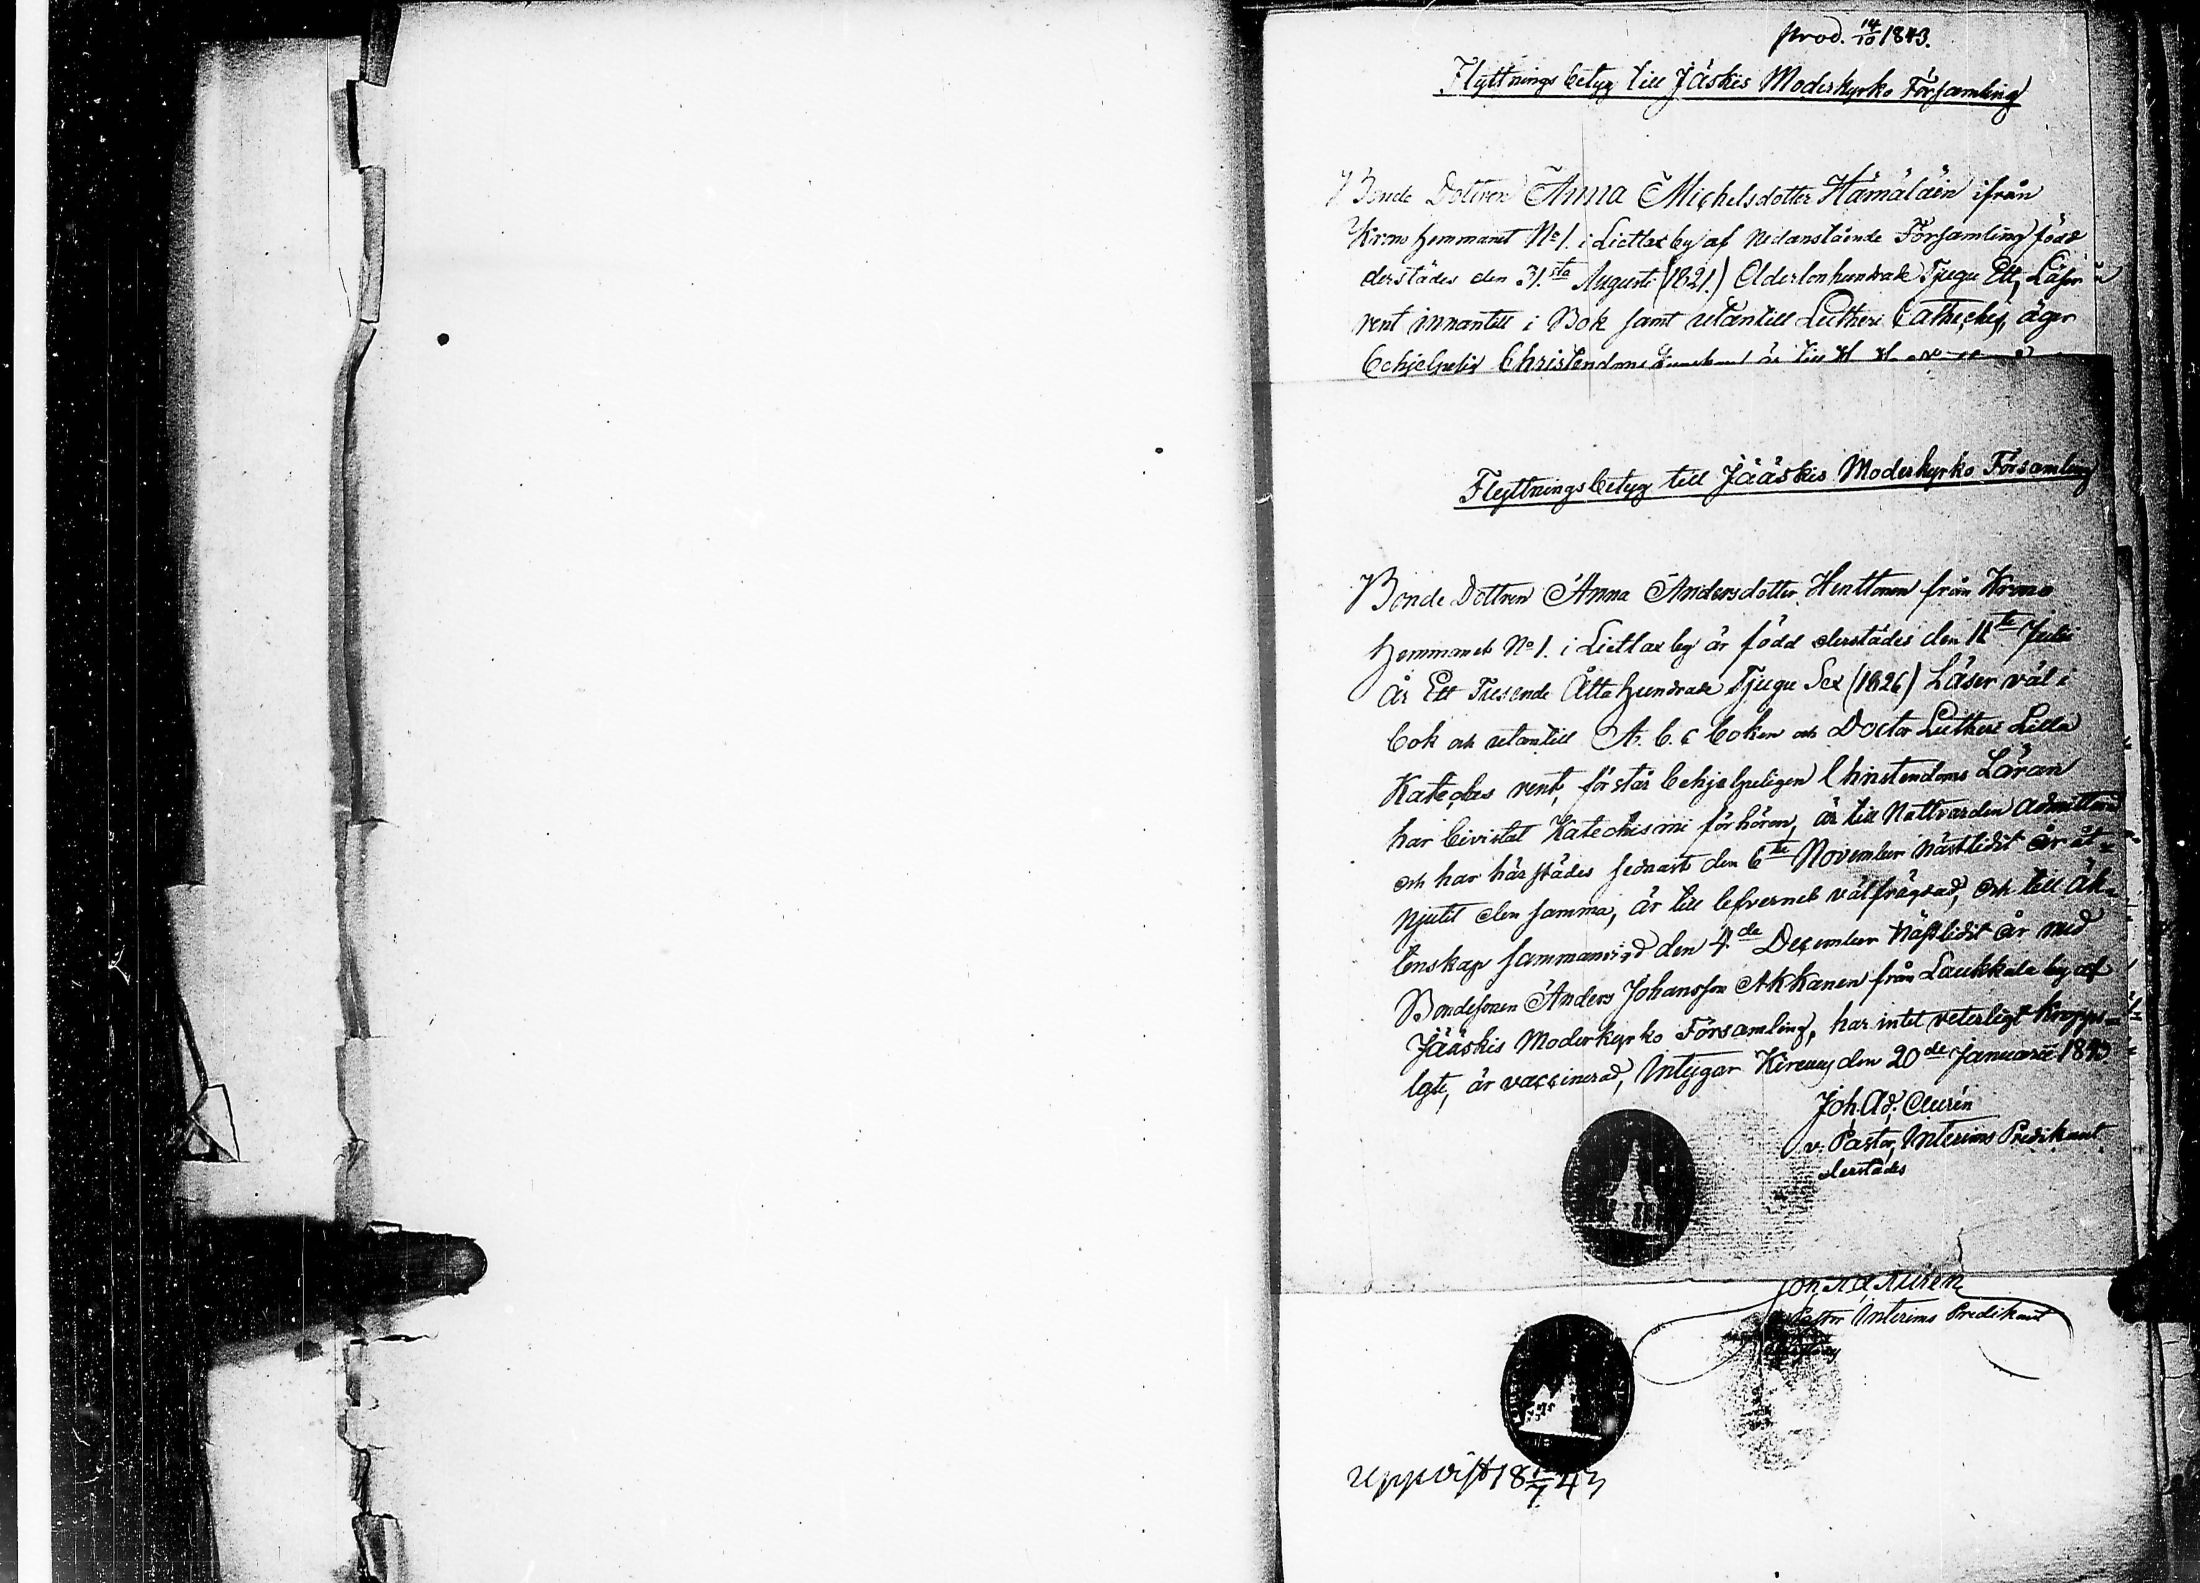 prod. 14/10 1843.
Flyttningsbetyg till Jäskis Moderkyrko Församling
Bonde Dottren Anna Michelsdotter Hämäläin ifrån
Krono hemmanet No 1. i Lietlax by af nedanstående Församling född
derstädes den 31.sta Augusti (1821.) Adertonhundrade Tjugu Ett, Läser
rent innantill i Bok samt utantill Lutheri Catheches, äger
behjelpelig Christendoms kunskap är till H. H.
Flyttningsbetyg till Jääskis Moderkyrko Församling
Bonde Dottren Anna Andersdotter Henttonen från Krono
hemmanet No 1. i Lietlax by är född derstädes den 11te Julii
År Ett Tusende Åttahundrade Tjugu Sex (1826) Läser väl i
bok och utantill A. b. c boken och Doctor Lutheri Lilla
Kateches rent, förstår behjelpeligen Christendoms Läran
har bivistat Katechismi förhören, är till Nattvarden admitterad
och har härstädes sednast den 6te November näst lidit år åt-
njutit den samma, är till lefvernet välfrägdad, och till äk-
tenskap sammanvigd den 4.de December näst lidit år med
Bondesonen Anders Johansson Akkanen från Laukkala by af
Jääskis Moderkyrko Församling, har intet veterligt kropps-
lyte, är vaccinerad, Intygar Kirvus den 20de Januarii 1843
Joh. Ad. Aurén
v. Pastor, Interims Predikant
derstädes
Joh. Ad. Aurén
v. Pastor Interims Predikant
Uppvist 18 1/7 43